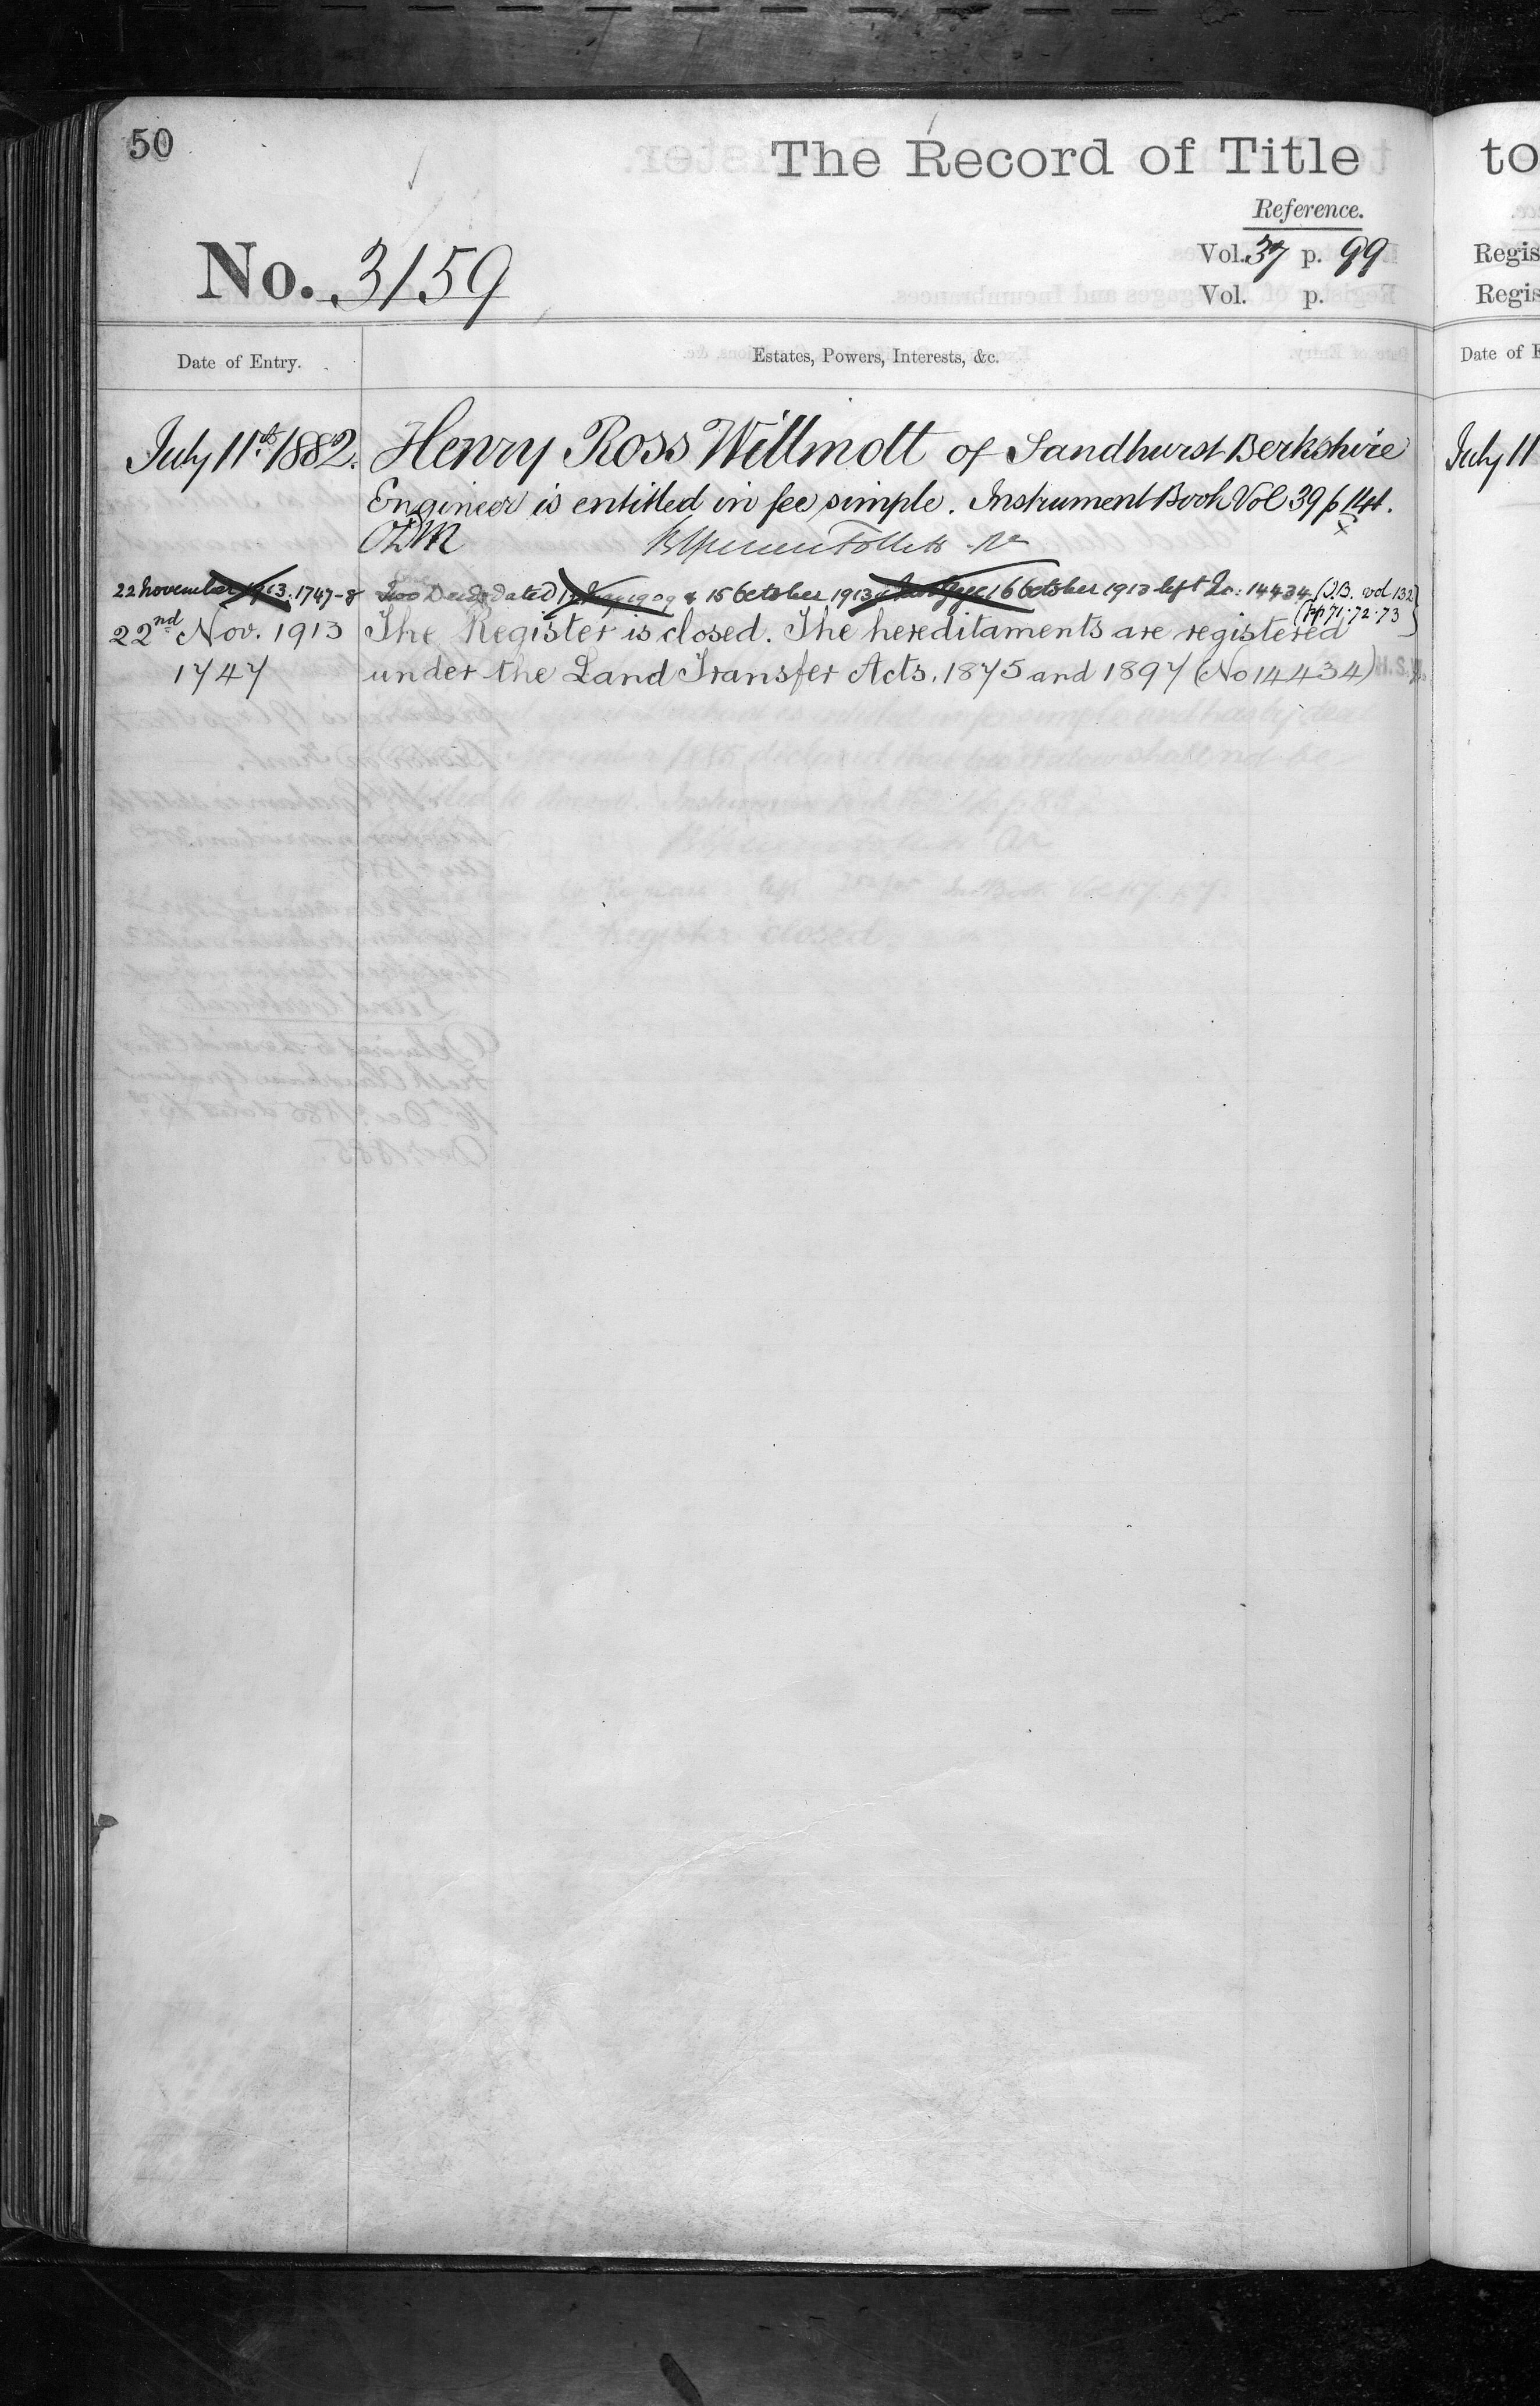 50
The Record of Title
Reference.
Vol. 37 p. 99
Vol. p.
No. 3159
Date of Entry.
Estates, Powers, Interests, &c.
July 11th 1882.
Henry Ross Willmott of Sandhurst Berkshire
Engineer is entitled in fee simple. Instrument Book Vol 39 p 141.
22 November 1913. 1747-8
Two Deeds dated 1909 & 15 October 1913 16 October 1913 left In: 14434 (I.B. vol 132
pp 71.72.73)
22nd Nov. 1913
1747
The Register is closed. The hereditaments are registered
under the Land Transfer Acts, 1875 and 1897 (No 14434)
to
Regis
Regis
Date of E
July 11